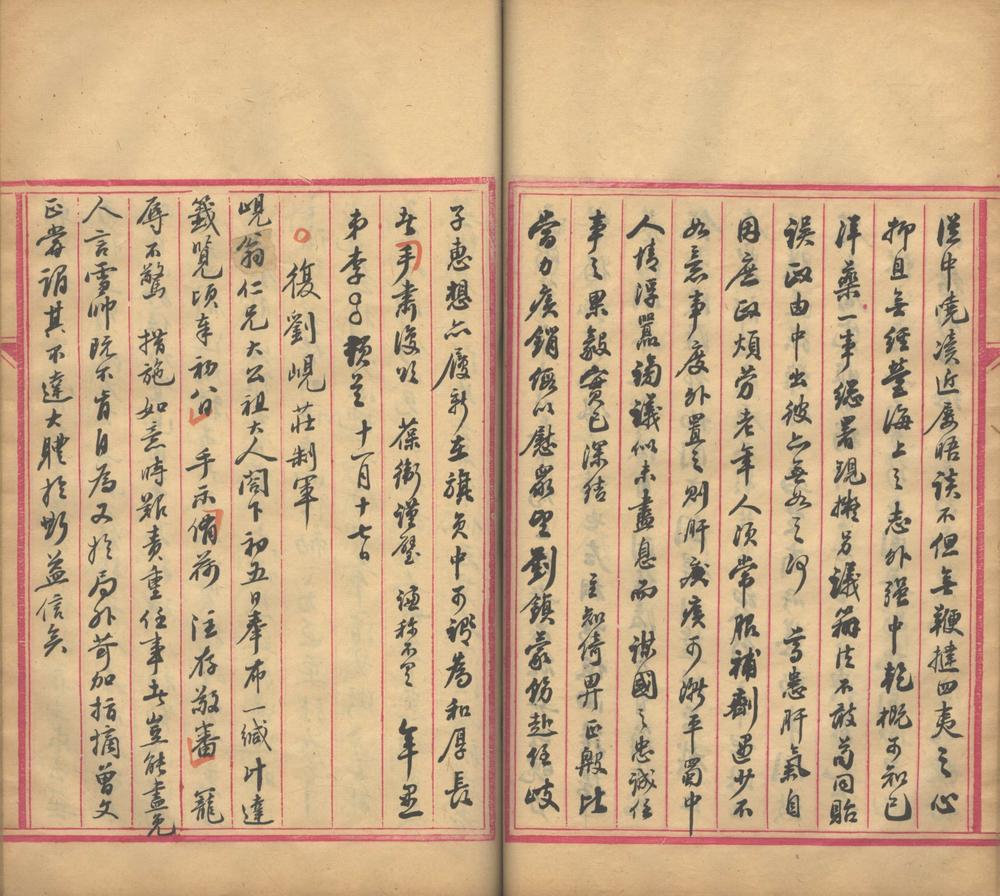 從中曉凟近屢晤談不但無鞭撻四夷之心
抑且無經營海上之志外强中乾概可知已
洋藥一事總署現擬另議辦法不敢苟同貽
誤政由中出彼亦無如之何 尊恙肝氣自
因庶政煩勞老年人須常服補劑遇少不
如意事度外置之則肝疾可漸平蜀中
人情浮囂謗議似未盡息而謀國之忠誠任
事之果毅實已深結 主知倚畀正殷比
當力疾銷假以慰眾望劉鎮蒙飭赴任岐
子惠想亦履新在旗員中可謂為和厚長
者手肅復頌 葆衛謹璧 謙稱不具 年愚
弟李 頓首 十一月十七日
復劉峴莊制軍
峴翁仁兄大公祖大人閣下初五日奉布一緘計達
籤覽頃奉初八日手示備荷 注存敬審 寵
辱不驚 措施如意時艱責重任事者豈能盡免
人言雪帥既不肯自為又於局外苛加指摘曾文
正嘗謂其不達大體於斯益信矣